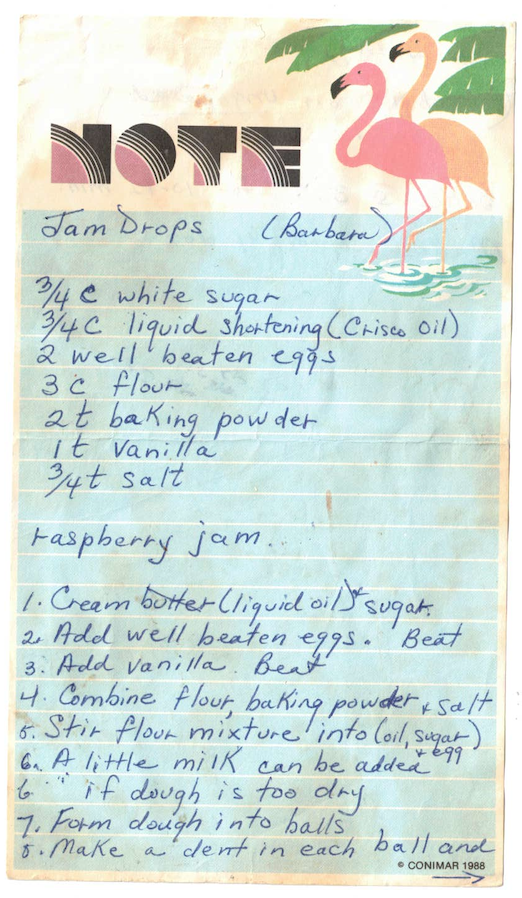 NOTE
Jam Drops (Barbara)
3/4 c white sugar
3/4 C liquid shortening (Crisco oil)
2 well beaten eggs
3 c flour
2 t baking powder
1 t vanilla
3/4 t salt
raspberry jam.
1. Cream butter (liquid oil) + sugar.
2. Add well beaten eggs. Beat
3. Add vanilla. Beat
4. Combine flour, baking powder + salt
5. Stir flour mixture into (oil, sugar)
+ egg
6. A little milk can be added
6 " if dough is too dry
7. Form dough into balls
8. Make a dent in each ball and
© CONIMAR 1988
→